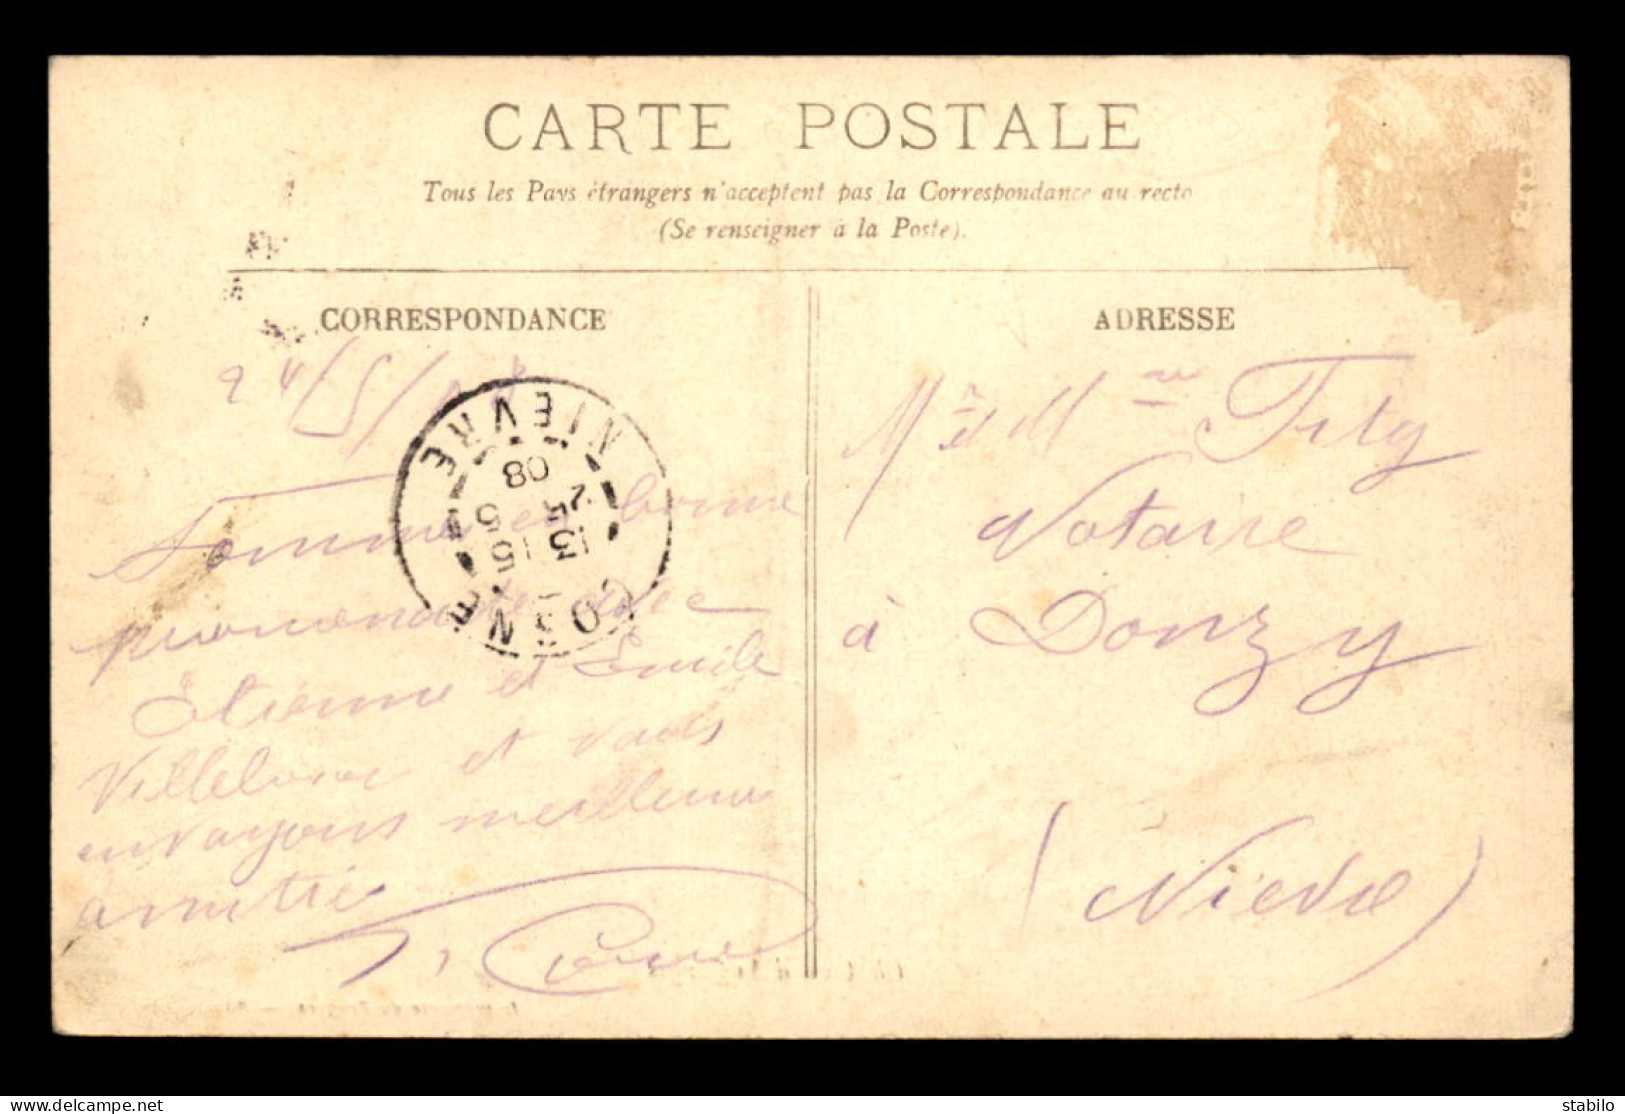 CARTE POSTALE
Tous les Pays étrangers n'acceptent pas la Correspondance au recto
(Se renseigner à la Poste).
CORRESPONDANCE
24/5/08
Sommes en bonne
promenade avec
Etienne et Emile
et vous
envoyons meilleures
amitiés
COSNE
13 15
25 5
08
NIEVRE
ADRESSE
M. et Mme
Notaire
à Donzy
(Nièvre)
stabilo